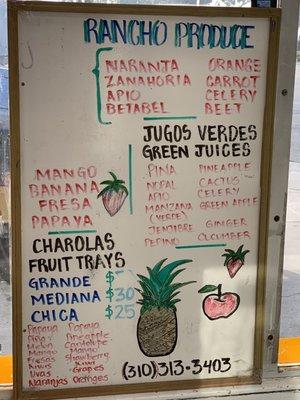 RANCHO PRODUCE
NARANJA ORANGE
ZANAHORIA CARROT
APIO CELERY
BETABEL BEET
JUGOS VERDES
GREEN JUICES
MANGO
BANANA
FRESA
PAPAYA
PIÑA PINEAPPLE
NOPAL CACTUS
APIO CELERY
MANZANA GREEN APPLE
(VERDE)
JENJIBRE GINGER
PEPINO CUCUMBER
CHAROLAS
FRUIT TRAYS
GRANDE $
MEDIANA $30
CHICA $25
Papaya Papaya
Piña Pineapple
Melon Cantolupe
Mango Mango
Fresas Strawberry
Kiwis Kiwis
Uvas Grapes
Naranjas Oranges
(310)313-3403